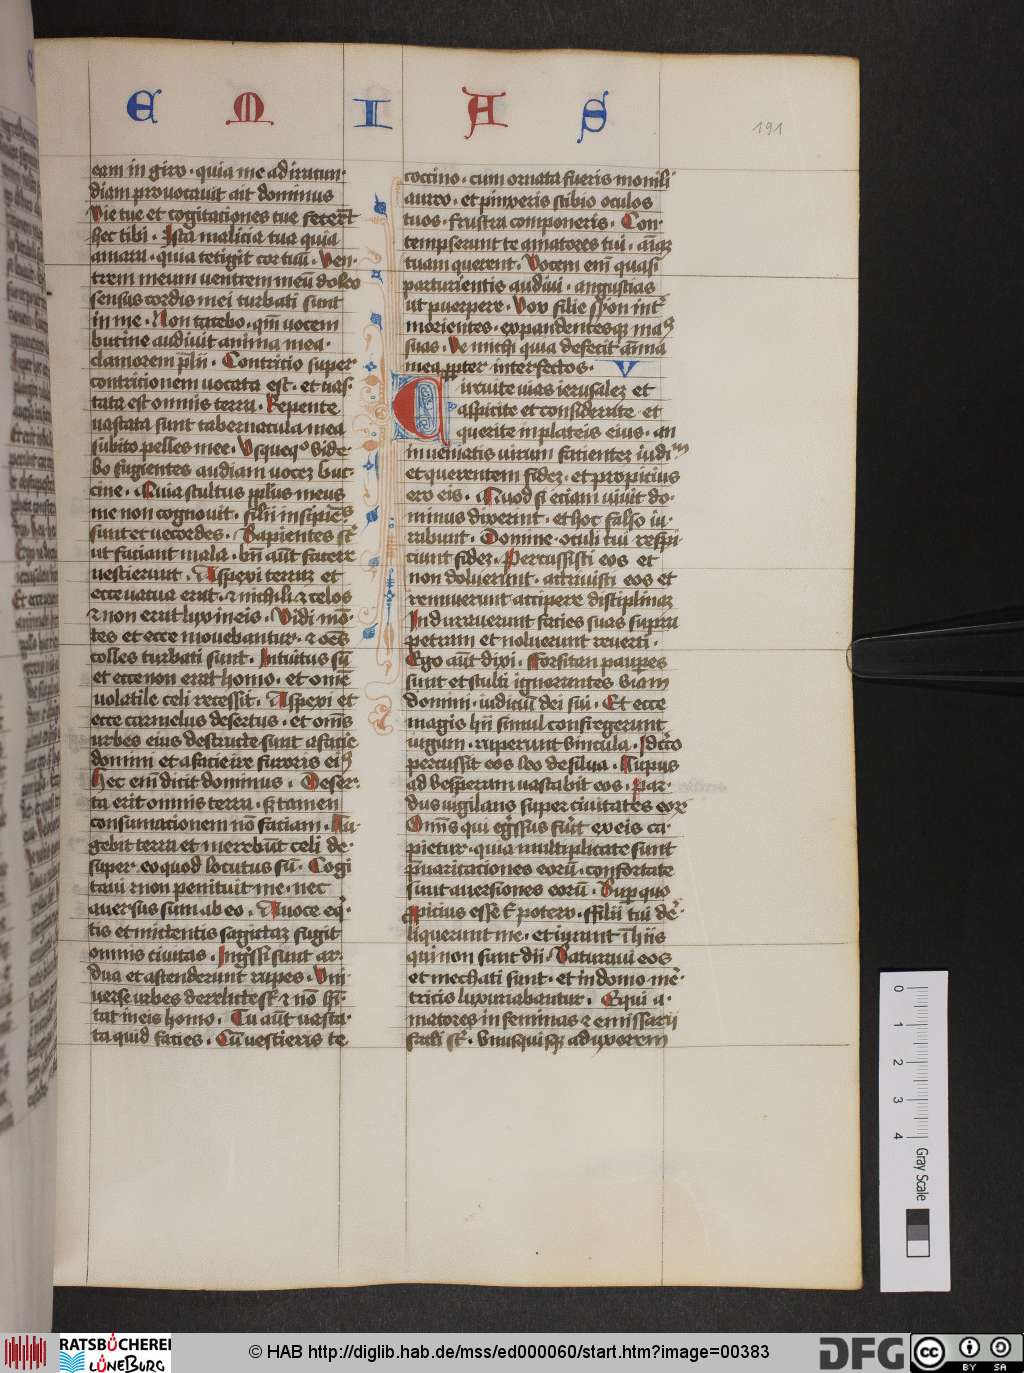 E M I A S
191
eam in giro · quia me ad iracun·
diam prouocauit ait dominus
Vie tue et cogitaciones tue fecerūt
hec tibi · Ista malicia tua quia
amara · quia tetigit cor tuū · Ven·
trem meum uentrem meū doleo
sensus cordis mei turbati sunt
in me · Non tacebo · qm̄ uocem
bucine audiuit anima mea ·
clamorem p̄lii · Contricio super
contricionem uocata est · et uas·
tata est omnis terra · Repente
uastata sunt tabernacula mea
subito pelles mee · Vsquequo vide·
bo fugientes audiam uocez buc·
cine · Quia stultus pplus meus
me non cognouit · filii insipiēs
sunt et uecordes · Sapientes st̄
ut faciant mala · bn̄ aūt facere
nescierunt · Aspexi terraz et
ecce uacua erat · ⁊ nichili · ⁊ celos
⁊ non erat lux in eis · Vidi mō·
tes et ecce mouebantur · ⁊ oēs
colles turbati sunt · Intuitus sū
et ecce non erat homo · et omē
uolatile celi recessit · Aspexi et
ecce carmelus desertus · et oms̄
urbes eius destructe sunt a facie
domini et a facie ire furoris eiꝰ
Hec em̄ dicit dominus · Deser·
ta erit omnis terra · s̄ tamen
consumacionem nō faciam · Lu·
gebit terra et merebūt celi de·
super · eo quod locutus sū · Cogi
taui ⁊ non penituit me · nec
auersus sum ab eo · A uoce eq̄·
tis et mittentis sagittaz fugit
omnis ciuitas · Ingr̄ssi sunt ar·
dua et ascenderunt rupes · Vni·
uerse urbes derelicte st̄ ⁊ nō hī·
tat in eis homo · Tu aūt uasta·
ta quid facies · Cū uestieris te
coccino · cum ornata fueris monili
aureo · et pinxeris stibio oculos
tuos · frustra componeris · Con·
tempserunt te amatores tui · aīaz
tuam querent · Vocem em̄ quasi
parturientis audiui · angustias
ut puerpere · Vox filie syon int̄
morientes · expandentesqz manꝰ
suas · Ve michi quia defecit aīma
mea ppter interfectos ·
V
Circuite uias ierusalez et
aspicite et considerate · et
querite in plateis eius · an
inueniatis uirum facientez iudicium
et querentem fidez · et propicius
ero eis · Quod si eciam uiuit do·
minus dixerint · et hoc falso iu·
rabunt · Domine · oculi tui respi
ciunt fidez · Percussisti eos et
non doluerunt · attriuisti eos et
renuerunt accipere disciplinaz
Indurauerunt facies suas supra
petram et noluerunt reuerti ·
Ego aūt dixi · Forsitan paupes
sunt et stulti ignorantes viam
domini · iudiciū dei sui · Et ecce
magis hii simul confregerunt
iugum · ruperunt vincula · Idcirco
percussit eos leo de silua · Lupus
ad vesperam uastabit eos · Par·
dus uigilans super ciuitates eorꝝ
Omīs qui egr̄ssus fuīt ex eis ca·
pietur · quia multiplicate sunt
p̄uaricaciones eorū · confortate
sunt auersiones eorū · Super quo
ꝓpicius esse t̄ potero · ffilii tui dē·
liquerunt me · et iurant ī hiis
qui non sunt dii · Saturaui eos
et mechati sunt · et in domo mē·
tricis luxuriabantur · Equi a·
matores in feminas ⁊ emissarii
facti st̄ · vnusquisqz ad uxorem
0 1 2 3 4
Gray Scale
RATSBÜCHEREI
LÜNEBURG
© HAB http://diglib.hab.de/mss/ed000060/start.htm?image=00383
DFG
CC BY SA